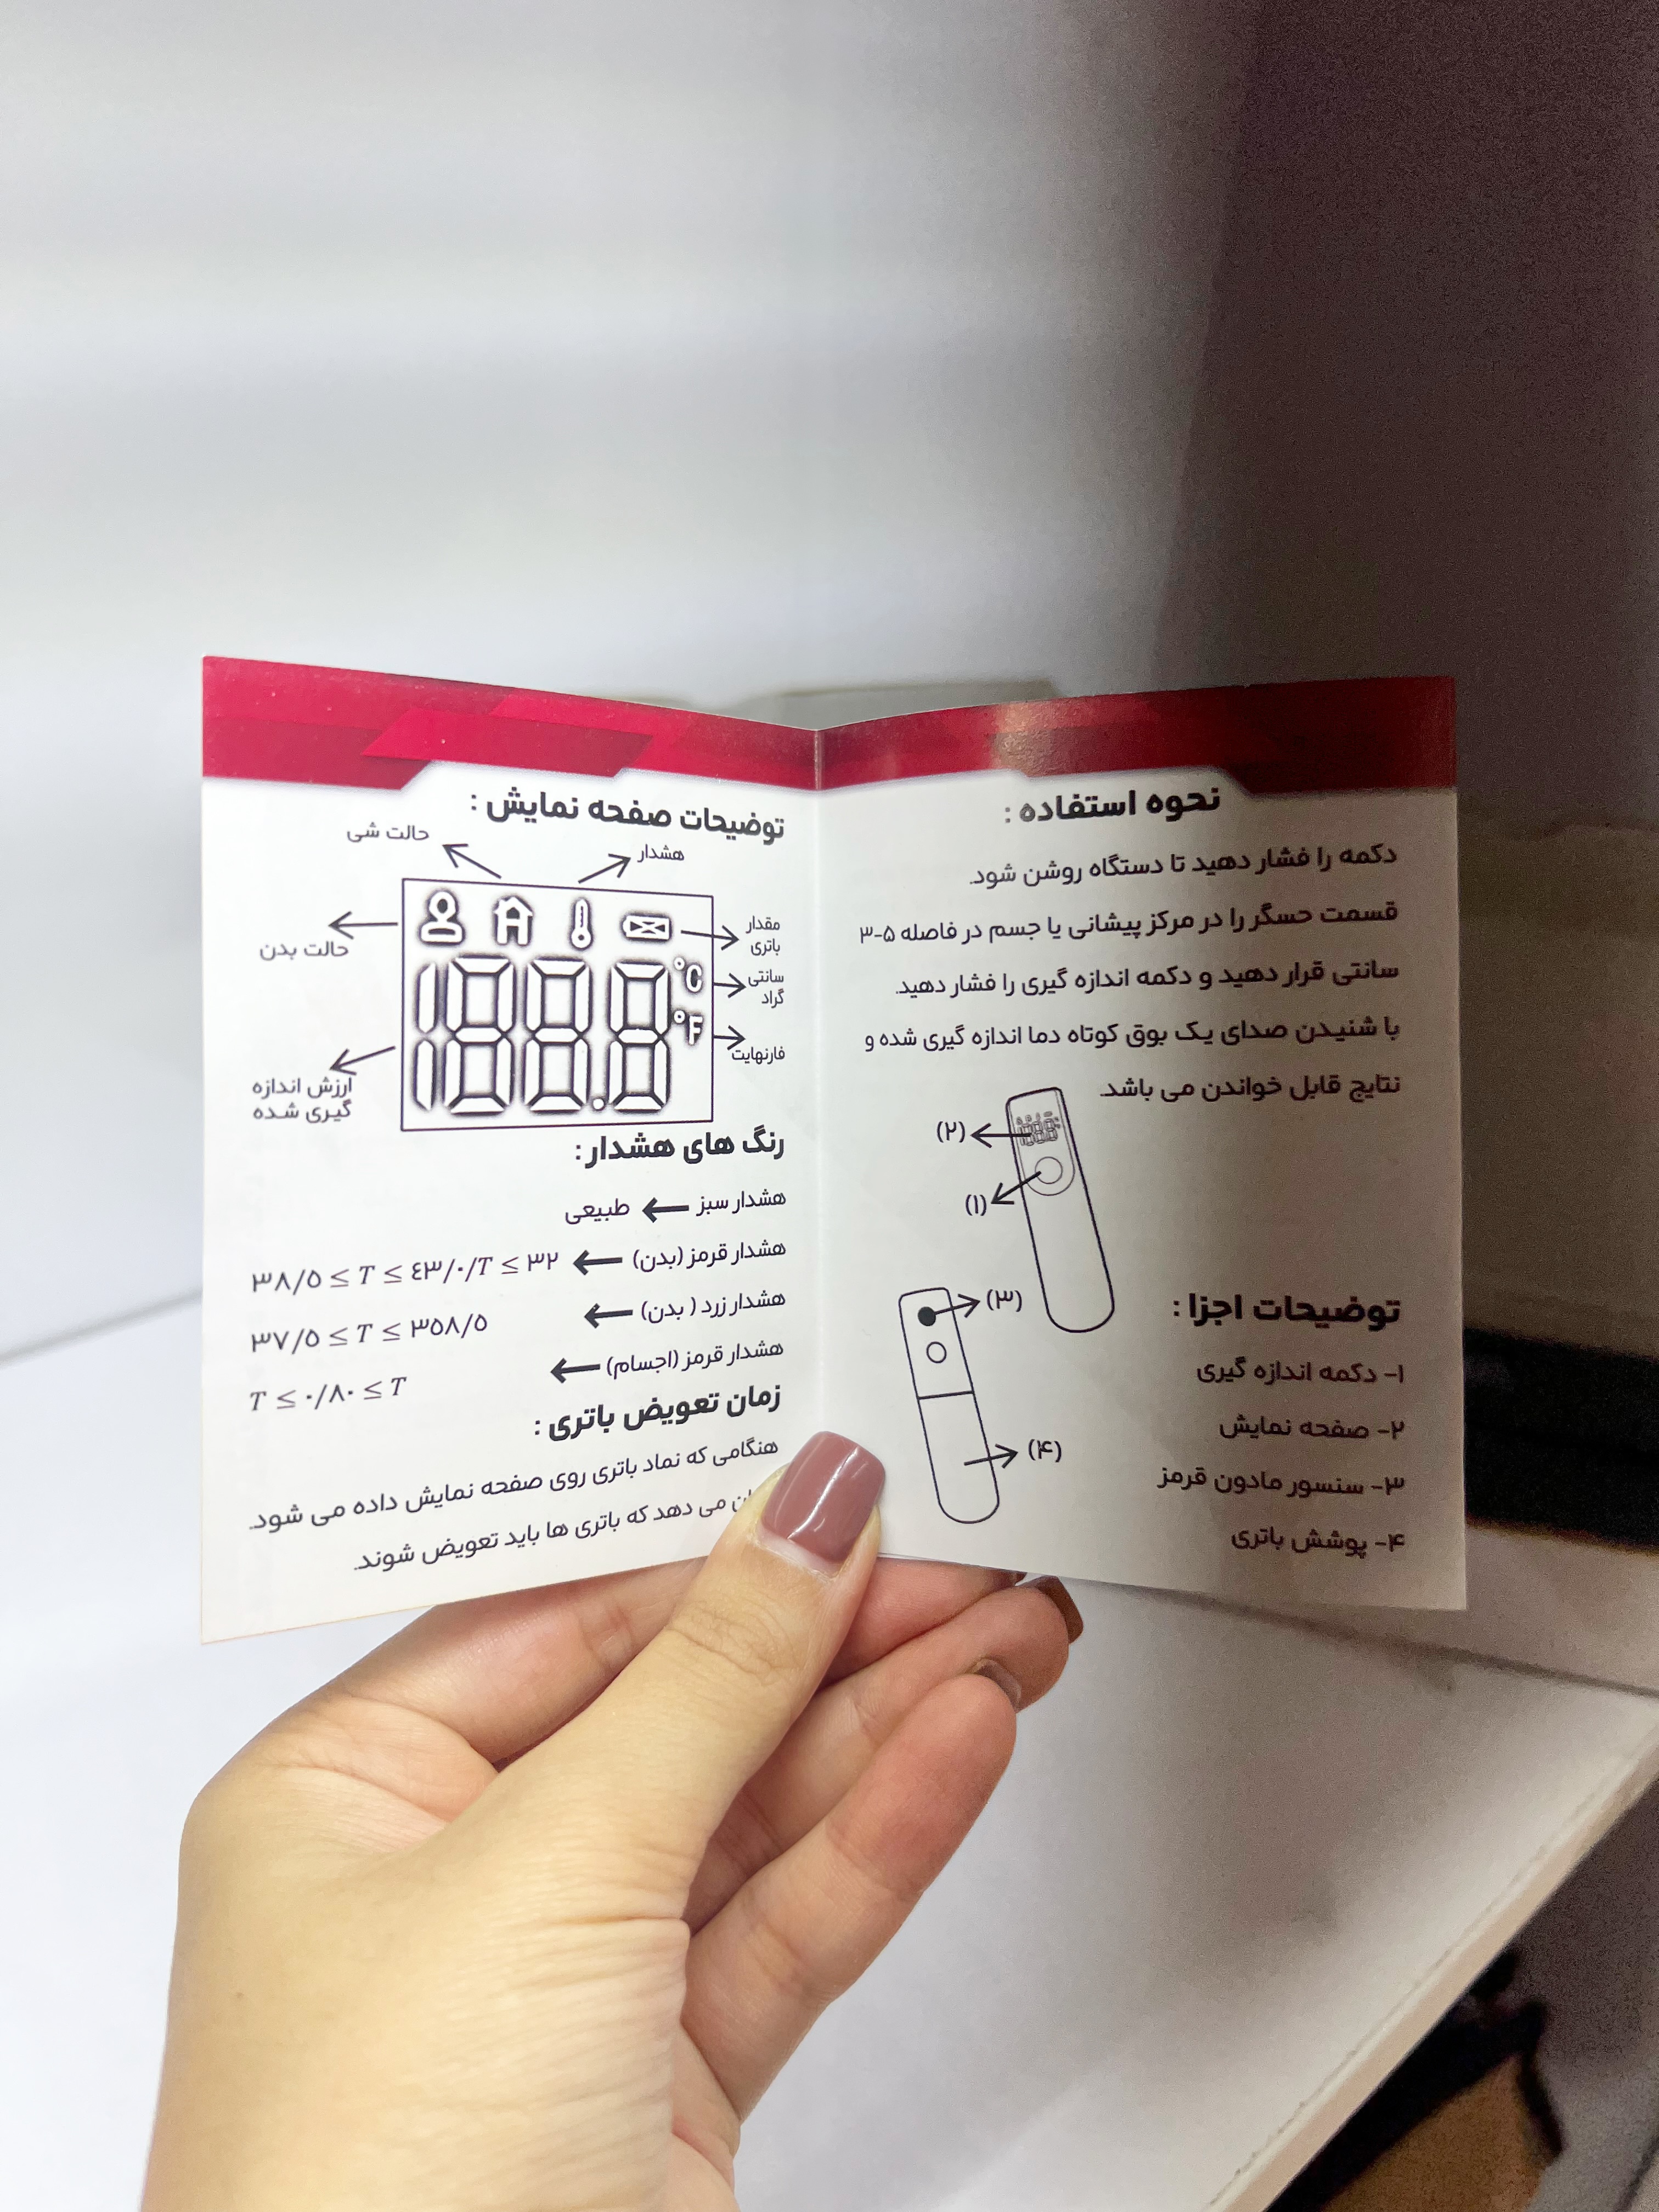 نحوه استفاده :
دکمه را فشار دهید تا دستگاه روشن شود.
قسمت حسگر را در مرکز پیشانی یا جسم در فاصله ۵-۳
سانتی قرار دهید و دکمه اندازه گیری را فشار دهید.
با شنیدن صدای یک بوق کوتاه دما اندازه گیری شده و
نتایج قابل خواندن می باشد.
(۲)
(۱)
(۳)
(۴)
توضیحات اجزا :
۱- دکمه اندازه گیری
۲- صفحه نمایش
۳- سنسور مادون قرمز
۴- پوشش باتری
توضیحات صفحه نمایش :
حالت شی
هشدار
حالت بدن
مقدار
باتری
سانتی
گراد
فارنهایت
ارزش اندازه
گیری شده
188.8
°C
°F
رنگ های هشدار :
هشدار سبز ← طبیعی
هشدار قرمز (بدن) ← ۳۸/۵ ≤ T ≤ ٤۳/۰/T ≤ ۳۲
هشدار زرد ( بدن) ← ۳۷/۵ ≤ T ≤ ۳۵۸/۵
هشدار قرمز (اجسام) ← T ≤ ۰/۸۰ ≤ T
زمان تعویض باتری :
هنگامی که نماد باتری روی صفحه نمایش داده می شود.
می دهد که باتری ها باید تعویض شوند.